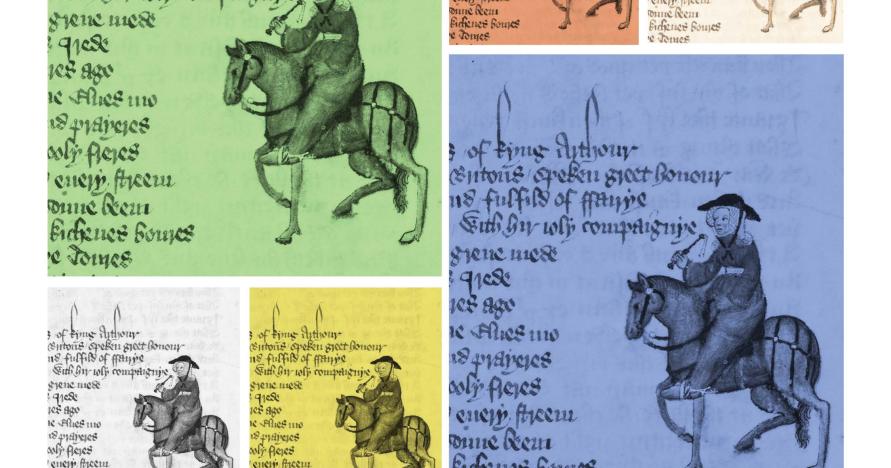 compaignye
grene mede
I rede
res ago
ne Elues mo
nd prayeres
ooly freres
euery streem
onne beem
kichenes boures
e Toures
onne beem
kichenes boures
e Toures
onne beem
kichenes boures
e Toures
s of kyng Arthour
Britons speken greet honour
nd fulfild of ffairye
With hir ioly compaignye
grene mede
I rede
res ago
ne Elues mo
nd prayeres
ooly freres
euery streem
onne beem
kichenes boures
s of kyng Arthour
Britons speken greet honour
nd fulfild of ffairye
With hir ioly compaignye
grene mede
I rede
res ago
ne Elues mo
nd prayeres
ooly freres
euery streem
s of kyng Arthour
Britons speken greet honour
nd fulfild of ffairye
With hir ioly compaignye
grene mede
I rede
res ago
ne Elues mo
nd prayeres
ooly freres
euery streem